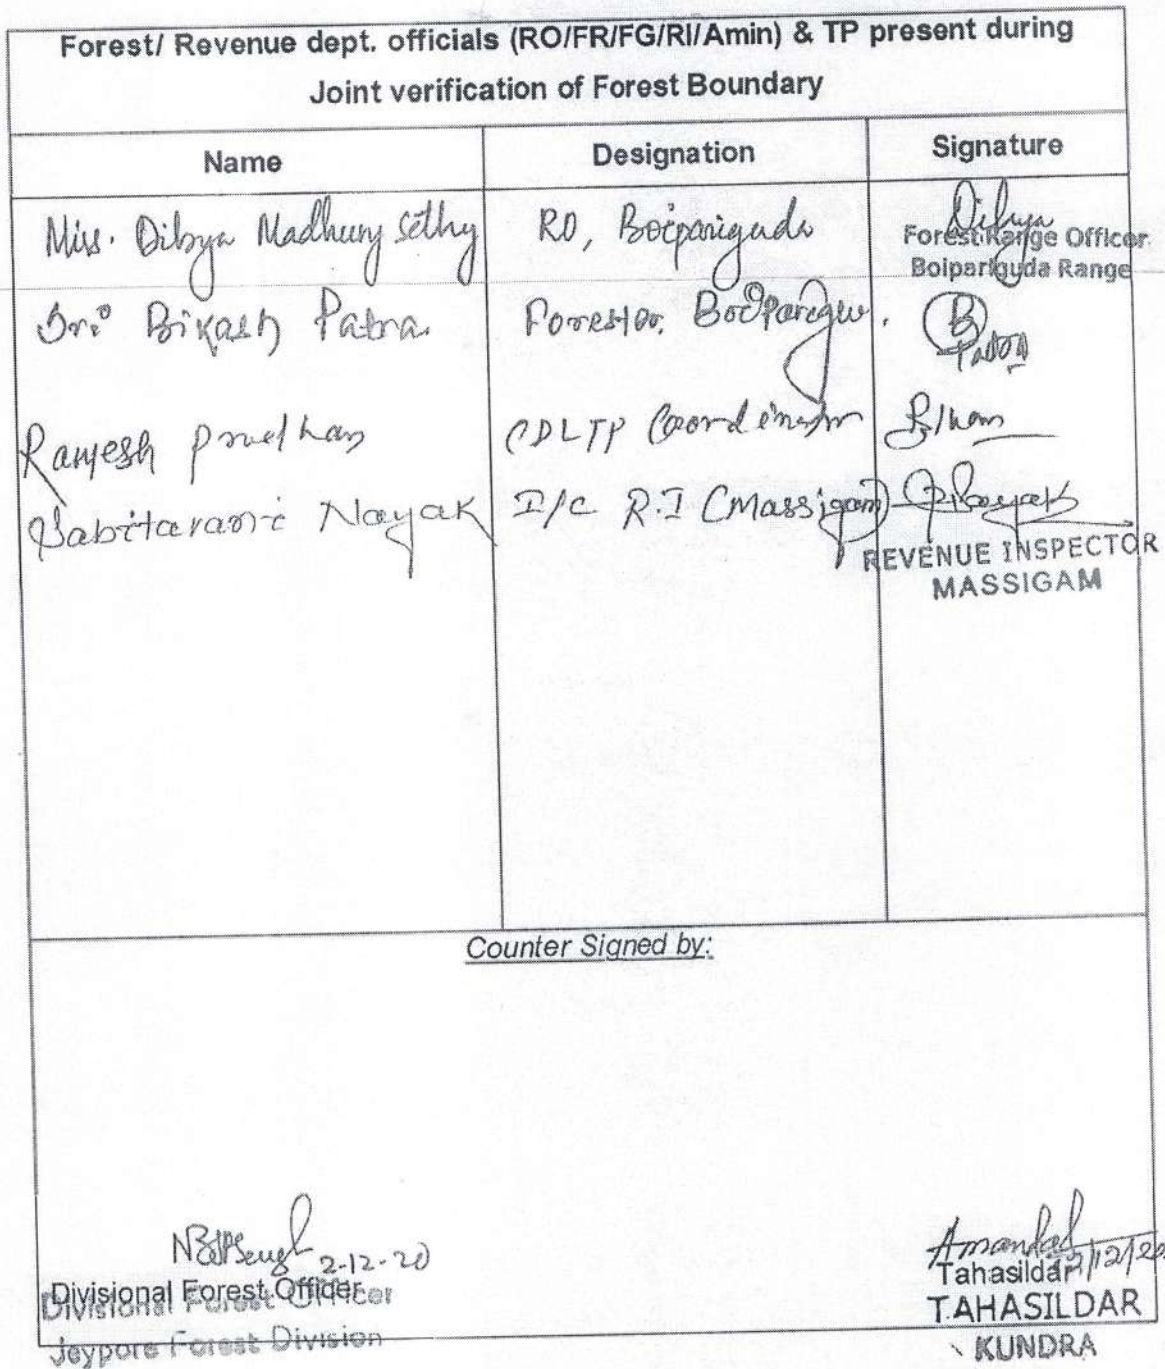 Forest/ Revenue dept. officials (RO/FR/FG/RI/Amin) & TP present during
Joint verification of Forest Boundary
Name Designation Signature
Miss. Dibya Madhury Sethy RO, Boipariguda Dibya
Forest Range Officer
Boipariguda Range
Sri Bikash Patra. Forester, B Patra
Ramesh Pradhan CDLTP Coordinator
Sabitarani Nayak I/C R.I (Massigam) Nayak
REVENUE INSPECTOR
MASSIGAM
Counter Signed by:
2-12-20
Divisional Forest Officer
Divisional Forest Officer
Jeypore Forest Division
Amandal
Tahasildar
TAHASILDAR
KUNDRA